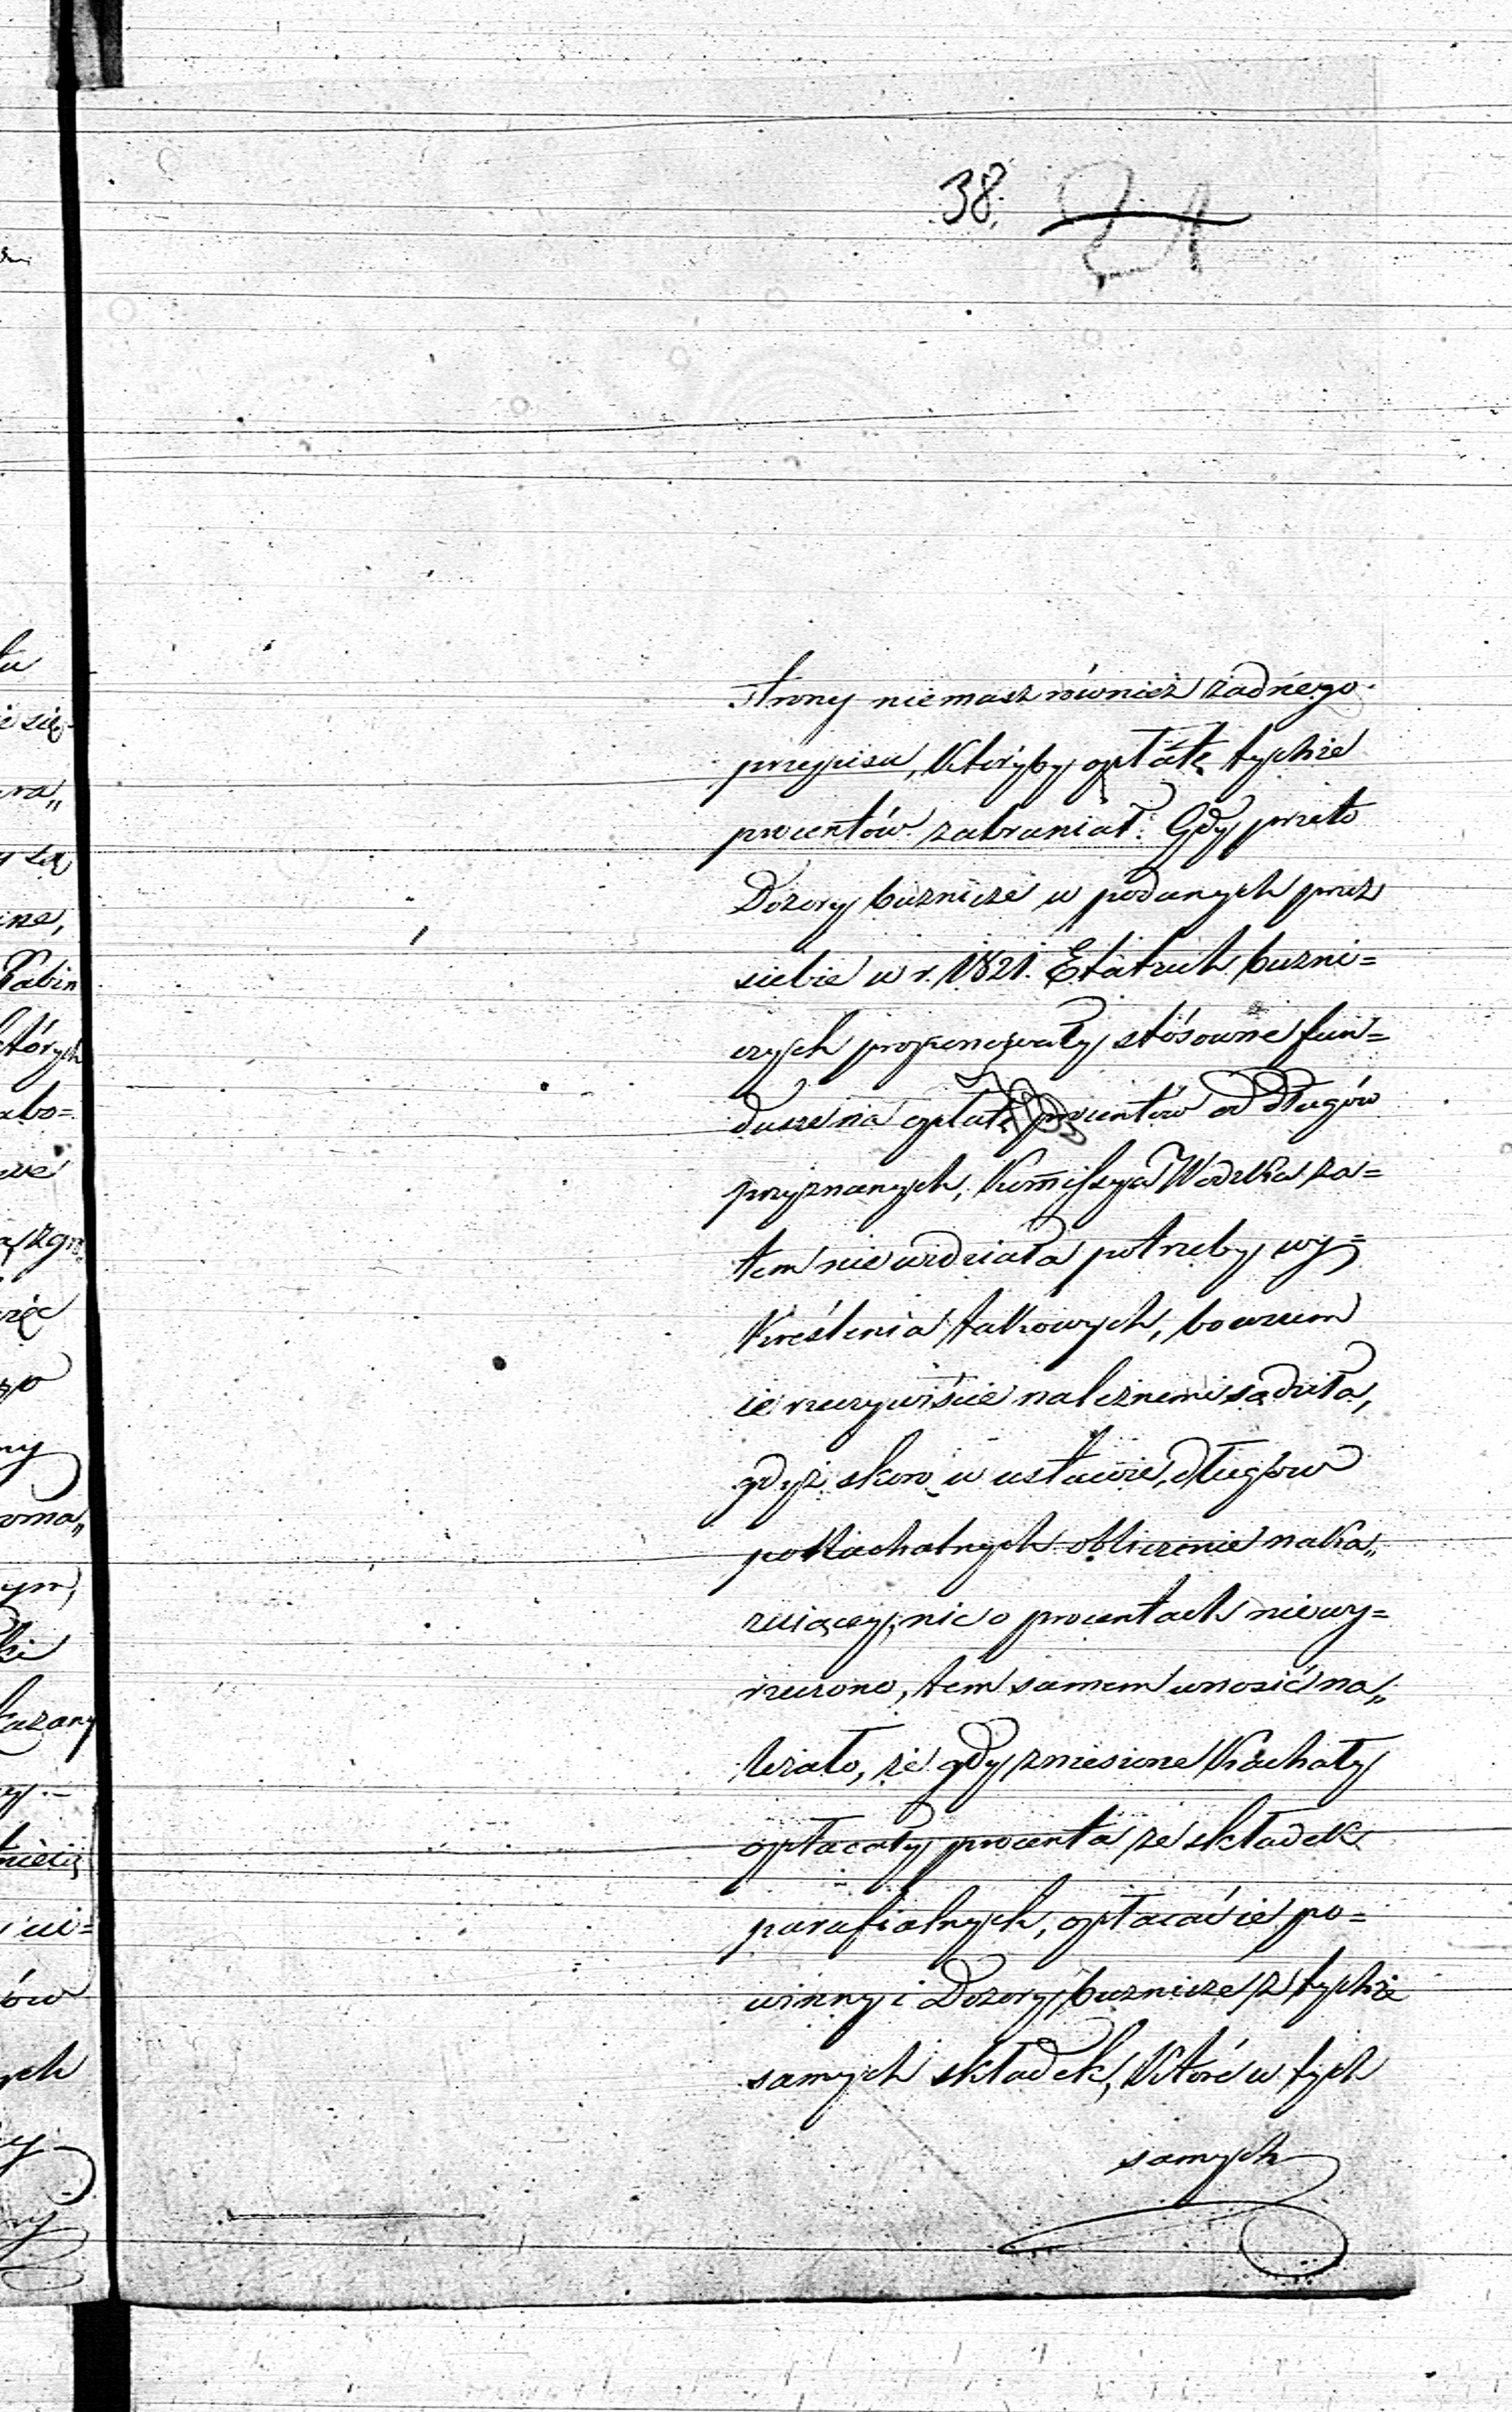 38. 21
strony niemasz również żadnego
przepisu, któryby opłatę tychże
procentów zabraniał. Gdy przeto
Dozory bużnicze w podanych przez
siebie w r. 1821. Etatach bużni=
czych proponowały stósowne fun=
dusze na opłatę procentów od długów
przyznanych, Kommissya Wodzka za=
tem nie widziała potrzeby wy=
kreślenia takowych, bowiem
ie rzeczywiście należnemi sądziła,
gdyż skoro w ustawie, długów
pokachalnych obliczenie naka„
zuiącey, nic o procentach niewy=
rzeczono, tem samem wnosić na„
leżało, że gdy zniesione Kachały
opłacały procenta ze składek
parafialnych, opłacać ie po=
winny i Dozory bużnicze z tychże
samych składek, które w tych
samych
tu
ie się
ra„
y są
ine,
Rabin
których
abo=
zgr
ięc
go
ny
oma„
ym,
ki
kazany
ey.—
ów
ych